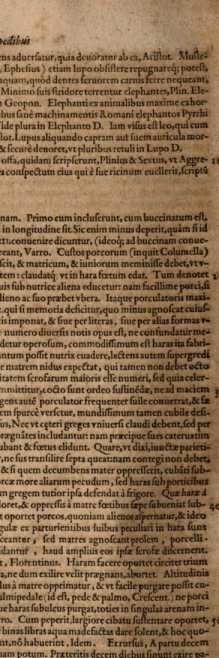 pedibus
ens aduersatur, quia deuorant ab ea, Aristot. Muste-
, Ephesius) etiam lupo obsistere repugnareq; potest,
quam, quod dentes feruorem carnis ferre nequeant,
Minimo suis stridore terrentur elephantes, Plin. Ele-
Geopon. Elephanti ex animalibus maxime ea hor-
bus sanè machinamentis Romani elephantos Pyrrhi
ide plura in Elephanto D. Iam visus est leo, qui cum
lor. Lupus aliquando capram aut suem auricula mor-
& securè denoret, vt pluribus retuli in Lupo D.
ossa, quidam scripserunt, Plinius & Sextus, vt Aggre-
a conspectum eius qui è sue ricinum euellerit, scriptu
nam. Primo cum incluserunt, cum buccinatum est,
in longitudine sit. Sic enim minus deperit, quàm si id
t conuenire dicuntur, (ideoq; ad buccinam conue-
reant, Varro. Custos porcorum (inquit Columella)
scit, & matricum, & iuniorum meminisse debet, vt v-
tem: claudatq; vt in hara fœtum edat. Tum denotet
is sub nutrice aliena educetur: nam facillime porci, si
lieno ac suo præbet vbera. Itaque porculatoris maxi-
. qui si memoria deficitur, quo minus agnoscat cuius-
is imponat, & sue per literas, siue per alias formas v-
numero diuersis notis opus est, ne confundatur me-
detur operosum, commodissimum est haras ita fabri-
ntum possit nutrix euadere, lactens autem supergredi
e matrem nidus expectat, qui tamen non debet octo
ratem scrofarum maioris esse numeri, sed quia celer-
mittitur, octo siue ordeo sustinedæ, ne ad maciem
gens autē porculator frequenter suile conuerrat, & sæ
em spurcè versetur, mundissimum tamen cubile desi-
us, Nec vt cæteri greges vniuersi claudi debent, sed per
ægnātes includantur: nam præcipue sues cateruatim
ubant & fœtus elidunt. Quare, vt dixi, iunctæ parieti-
ne sus transilire septa queat: nam contegi non debet,
& si quem decumbens mater oppresserit, cubāti sub-
orcæ more aliarum pecudum, sed haras sub porticibus
m gregem tutior ipsa defendat à frigore. Quæ hara à
oret, & oppressi à matre fœtibus sæpe subueniat sub-
oportet porcos, quoniam alienos aspernatur, & ideo
gulæ ex parturientibus suibus peculiari in hara sunt
ceantur, sed matres agnoscant prolem, porcelli-
dantur, haud amplius eos ipsæ scrofæ discernent.
, Florentinus. Haram facere oportet circiter trium
a, ne dum exilire velit prægnans, abortet. Altitudinis
lus à matre opprimatur, & vt facilè purgare possit cu-
almipedale (id est, pede & palmo, Crescent.) ne porci
ue haras subulcus purgat, toties in singulas arenam in-
ro. Cum peperit, largiore cibatu sustentare oportet,
binas libras aqua madefactas dare solent, & hoc quo-
nt, nō habuerint, Idem. Exrursus, A partu decem
am potum. Præteritis decem diebus sinunt exire po-